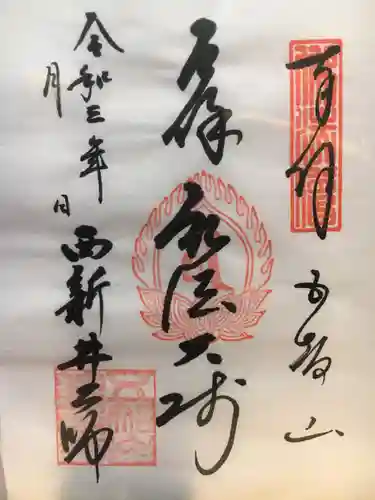 奉拝
五智山
厄除
弘法大師
令和三年
月　日
西新井大師